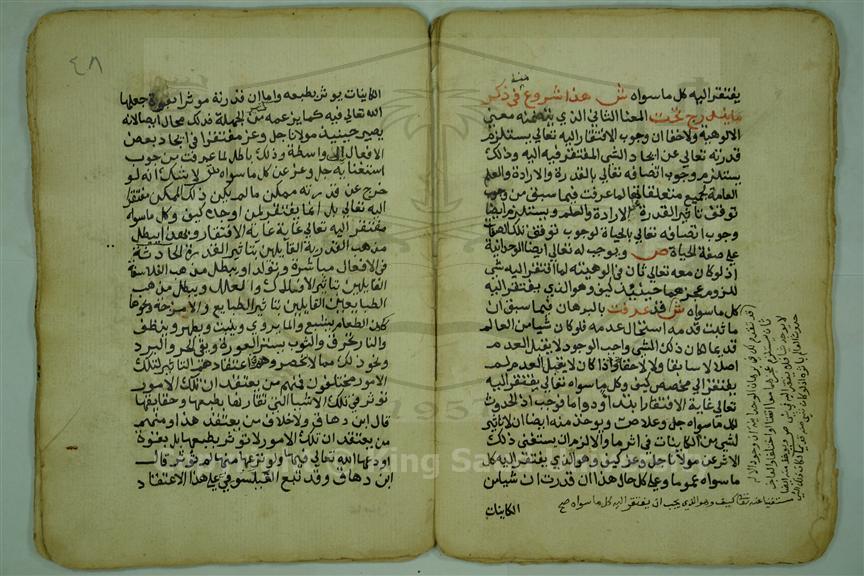 يفتقر اليه كل ما سواه ش هذا شروع في ذكر
ما يندرج تحت المعنا الثاني الذي يتضمنه معنى
الالوهية ولا خفا ان وجوب الافتقار اليه تعالى يستلزم
قدرته تعالى عن ايجاد الشي المفتقر فيه اليه وذلك
يستلزم وجوب اتصافه تعالى بالقدرة والارادة والعلم
العامة لجميع متعلقاتها لما عرفت فيما سبق من وجوب
توقف تاثير القدرة على الارادة والعلم ويستلزم ايضا
وجوب اتصافه تعالى بالحياة لوجوب توقف تلك الصفات
على صفة الحياة ص ويوجب له تعالى ايضا الوحدانية
اذ لو كان معه تعالى ثان في الوهيته لما افتقر اليه شي
للزوم عجزهما حينيذ كيف وهو الذي يفتقر اليه
كل ما سواه ش قد عرفت بالبرهان فيما سبق ان
ما ثبت قدمه استحال عدمه فلو كان شيا من العالم
قديما لكان ذلك الشي واجب الوجود لا يقبل العدم
اصلا لا سابقا ولا لاحقا واذا كان لا يقبل العدم لم
يفتقر الى مخصص كيف وكل ما سواه تعالى يفتقر اليه
تعالى غاية الافتقار ابتدا ودواما فوجب اذ الحدوث
لكل ما سواه جل وعلا ص ويوخذ منه ايضا ان لا تاثير
لشي من الكاينات في اثر ما والا لزم ان يستغني ذلك
الاثر عن مولانا جل وعز كيف وهو الذي يفتقر اليه كل
ما سواه عموما وعلى كل حال هذا ان قدرت ان شيا من
الكاينات
كيف وهو الذي يجب ان يفتقر اليه كل ما سواه صح
٤٨
الكاينات يوثر بطبعه واما ان قدرته موثرا بقوة جعلها
الله تعالى فيه كما يزعمه كثير من الجهلة فذلك محال ايضا لانه
يصير حينيذ مولانا جل وعز مفتقرا في ايجاد بعض
الافعال الى واسطة وذلك باطل لما عرفت من وجوب
استغنايه جل وعز عن كل ما سواه ش لا شك انه لو
خرج عن قدرته ممكن ما لم يكن ذلك الممكن مفتقرا
اليه تعالى بل انما يفتقر لمن اوجده كيف وكل ما سواه
مفتقر اليه تعالى غاية الافتقار وبهذا يبطل
مذهب القدرية القايلين بتاثير القدرة الحادثة
في الافعال مباشرة وتولدا ويبطل مذهب الفلاسفة
القايلين بتاثير الافلاك والعلل ويبطل مذهب
الطبايعيين القايلين بتاثير الطبايع والامزجة ونحوها
ككون الطعام يشبع والما يروي وينبت ويطهر وينظف
والنار تحرق والثوب يستر العورة ويقي الحر والبرد
ونحو ذلك مما لا ينحصر وهم في اعتقاد هذا التاثير لتلك
الامور مختلفون فمنهم من يعتقد ان تلك الامور
توثر في تلك الاشيا التي تقارنها بطبعها وحقايقها
قال ابن دهاق ولا خلاف من يعتقد هذا ومنهم
من يعتقد ان تلك الامور لا توثر بطبعها بل بقوة
اودعها الله تعالى فيها ولو نزعها منها لم توثر قال
ابن دهاق وقد تبع الفيلسوفي على هذا الاعتقاد